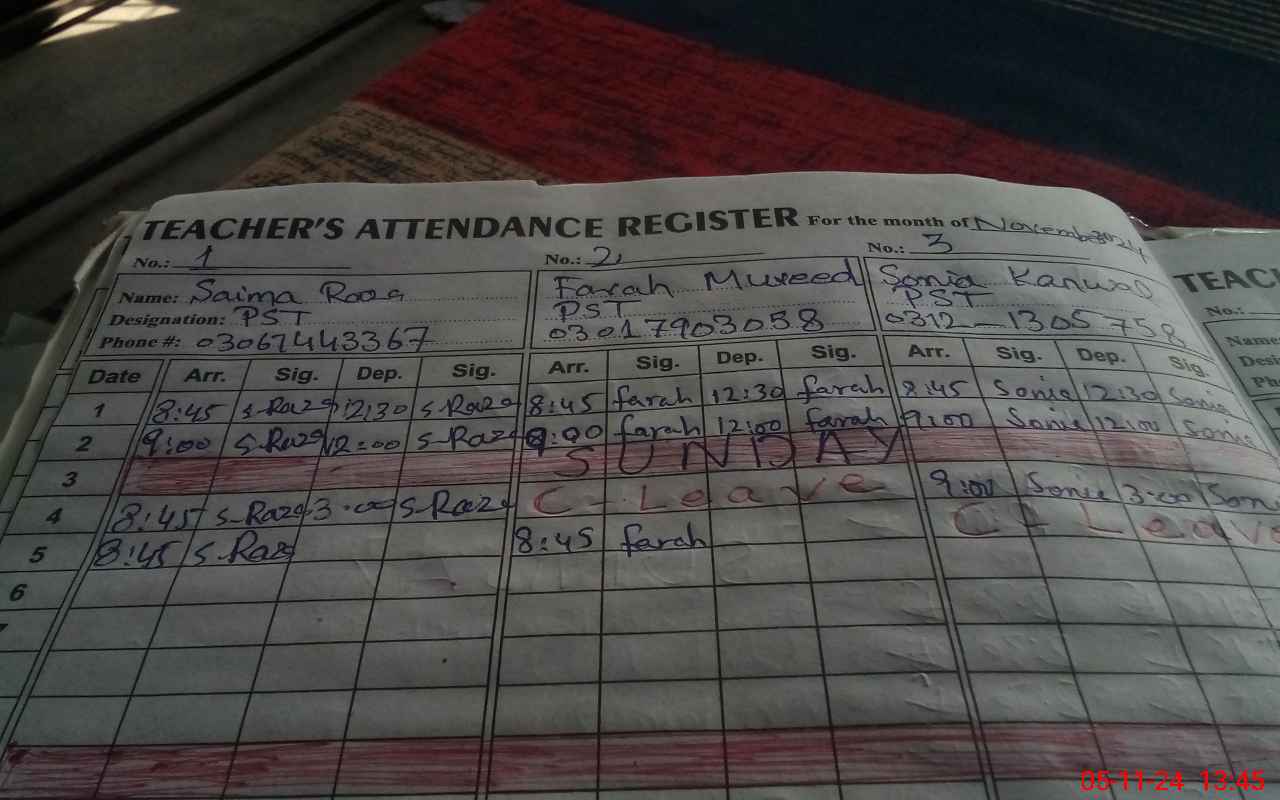 TEACHER'S ATTENDANCE REGISTER For the month of November 2024
No.: 1 No.: 2 No.: 3
Name: Saima Raza Farah Mureed Sonia Kanwal
Designation: PST PST PST
Phone #: 03067443367 03017903058 0312-1305758
Date Arr. Sig. Dep. Sig. Arr. Sig. Dep. Sig. Arr. Sig. Dep. Sig.
1 8:45 S-Raza 12:30 S-Raza 8:45 farah 12:30 farah 8:45 Sonia 12:30 Sonia
2 9:00 S-Raza 12:00 S-Raza 9:00 farah 12:00 farah 9:00 Sonia 12:00 Sonia
3 SUNDAY
4 8:45 S-Raza 3:00 S-Raza C-Leave 9:00 Sonia 3:00 Son
5 8:45 S-Raz 8:45 farah C-Leave
6
TEAC
No.:
Name
Desi
Ph
05-11-24 13:45